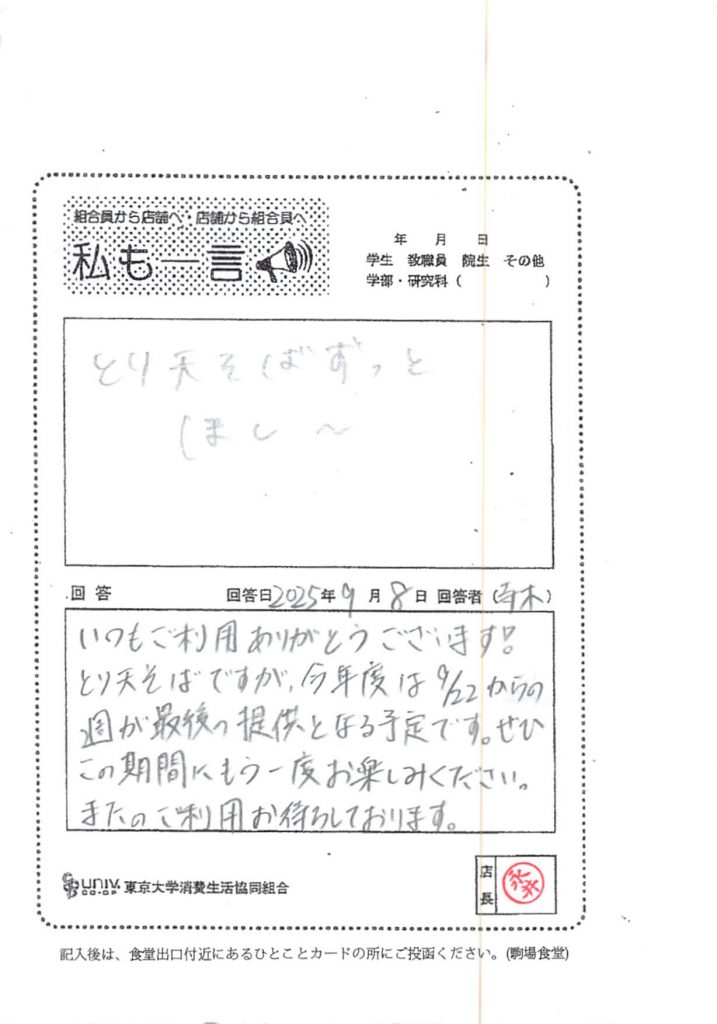 組合員から店舗へ・店舗から組合員へ
私も一言
年 月 日
学生 教職員 院生 その他
学部・研究科 ( )
とり天そばずっと
ほし～
回答 回答日2025年9月8日 回答者 (青木)
いつもご利用ありがとうございます!
とり天そばですが、今年度は9/22からの
週が最後の提供となる予定です。ぜひ
この期間にもう一度お楽しみください。
またのご利用お待ちしております。
univ. CO-OP 東京大学消費生活協同組合
店長
記入後は、食堂出口付近にあるひとことカードの所にご投函ください。(駒場食堂)